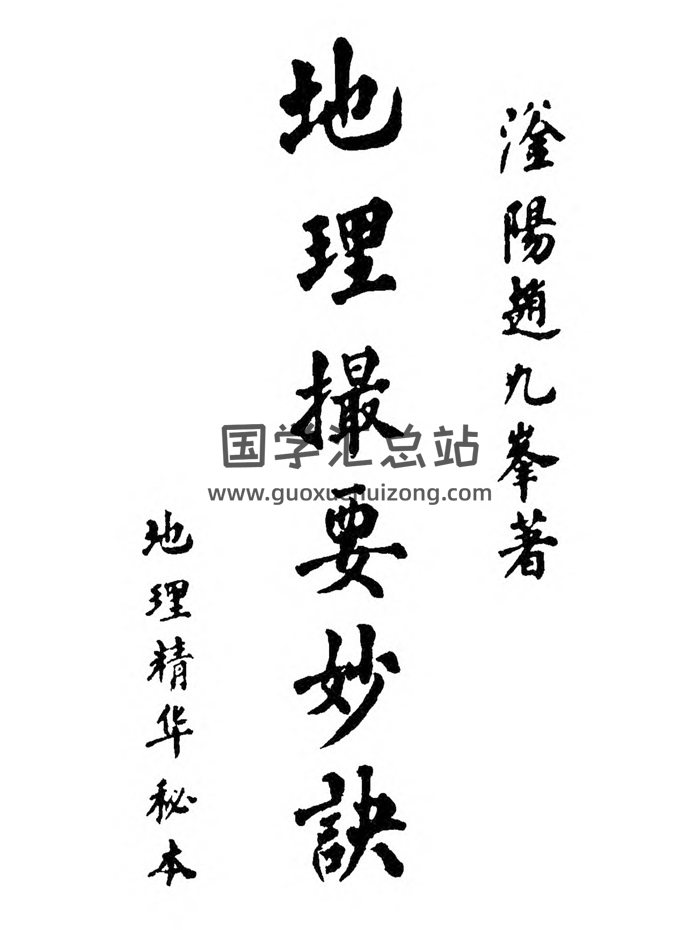 滏陽趙九峯著
地理撮要妙訣
地理精华秘本
国学汇总站
www.guoxuehuizong.com